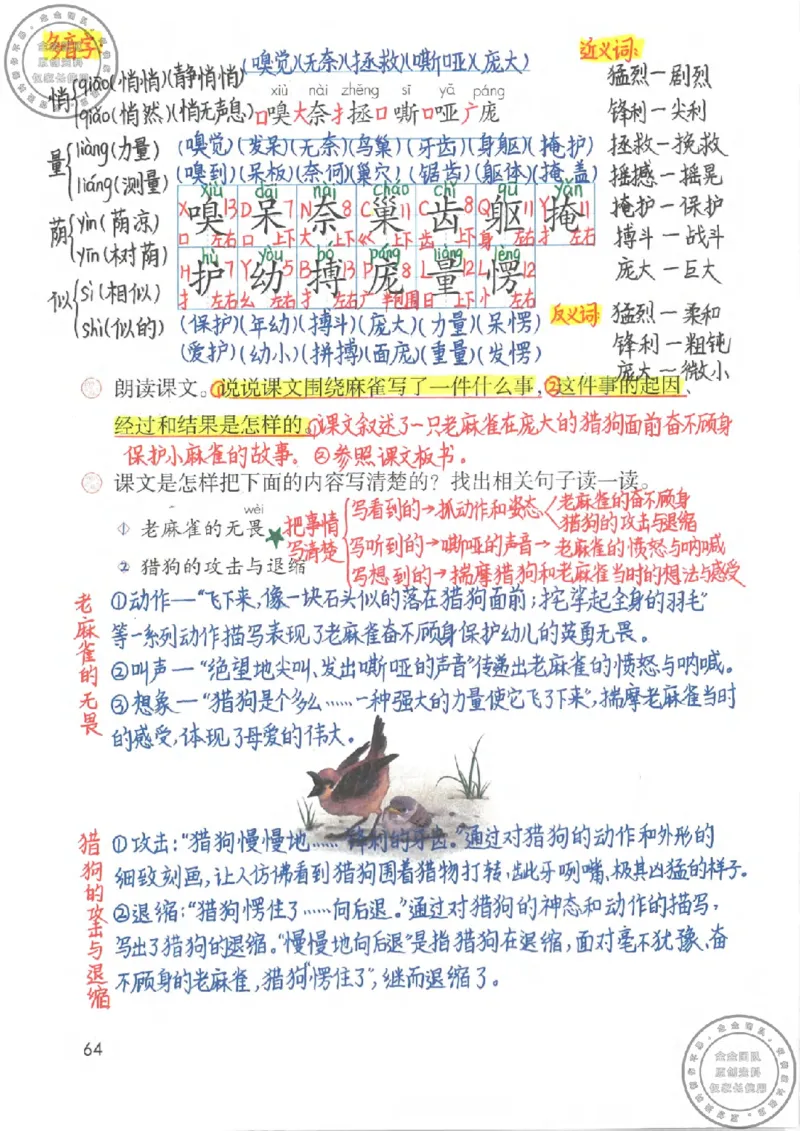 多音字:
(嗅觉)(无奈)(拯救)(嘶哑)(庞大)
近义词:
悄 qiāo(悄悄)(静悄悄)
qiǎo(悄然)(悄无声息)
xiù nài zhěng sī yǎ páng
口嗅大奈扌拯口嘶口哑广庞
猛烈—剧烈
锋利—尖利
拯救—挽救
摇撼—摇晃
掩护—保护
搏斗—战斗
庞大—巨大
量 liàng(力量)
liáng(测量)
荫 yìn(荫凉)
yīn(树荫)
似 sì(相似)
shì(似的)
(嗅觉)(发呆)(无奈)(鸟巢)(牙齿)(身躯)(掩护)
(嗅到)(呆板)(奈何)(巢穴)(锯齿)(躯体)(掩盖)
xiù dāi nài cháo chǐ qū yǎn
X 嗅 13 D 呆 7 N 奈 8 C 巢 11 C 齿 8 Q 躯 11 Y 掩 11
口 左右 口 上下 大 上下 巛 上下 齿 上下 身 左右 扌 左右
hù yòu bó páng liàng lèng
H 护 7 Y 幼 5 B 搏 13 P 庞 8 L 量 12 L 愣 12
扌 左右 幺 左右 扌 左右 广 半包围 日 上下 忄 左右
(保护)(年幼)(搏斗)(庞大)(力量)(呆愣)
(爱护)(幼小)(拼搏)(面庞)(重量)(发愣)
反义词: 猛烈—柔和
锋利—粗钝
庞大—微小
朗读课文。①说说课文围绕麻雀写了一件什么事,②这件事的起因、
经过和结果是怎样的。①课文叙述了一只老麻雀在庞大的猎狗面前奋不顾身
保护小麻雀的故事。②参照课文板书。
课文是怎样把下面的内容写清楚的?找出相关句子读一读。
wèi
① 老麻雀的无畏
② 猎狗的攻击与退缩
把事情
写清楚
写看到的→抓动作和姿态
老麻雀的奋不顾身
猎狗的攻击与退缩
写听到的→嘶哑的声音→老麻雀的愤怒与呐喊
写想到的→揣摩猎狗和老麻雀当时的想法与感受
老麻雀的无畏
①动作—“飞下来,像一块石头似的落在猎狗面前;扎煞起全身的羽毛”
等一系列动作描写表现了老麻雀奋不顾身保护幼儿的英勇无畏。
②叫声—“绝望地尖叫、发出嘶哑的声音”传递出老麻雀的愤怒与呐喊。
③想象—“猎狗是个多么……一种强大的力量使它飞了下来”,揣摩老麻雀当时
的感受,体现了母爱的伟大。
猎狗的攻击与退缩
①攻击:“猎狗慢慢地……锋利的牙齿。”通过对猎狗的动作和外形的
细致刻画,让人仿佛看到猎狗围着猎物打转、龇牙咧嘴、极其凶猛的样子。
②退缩:“猎狗愣住了……向后退。”通过对猎狗的神态和动作的描写,
写出了猎狗的退缩。“慢慢地向后退”是指猎狗在退缩,面对毫不犹豫、奋
不顾身的老麻雀,猎狗“愣住了”,继而退缩了。
64